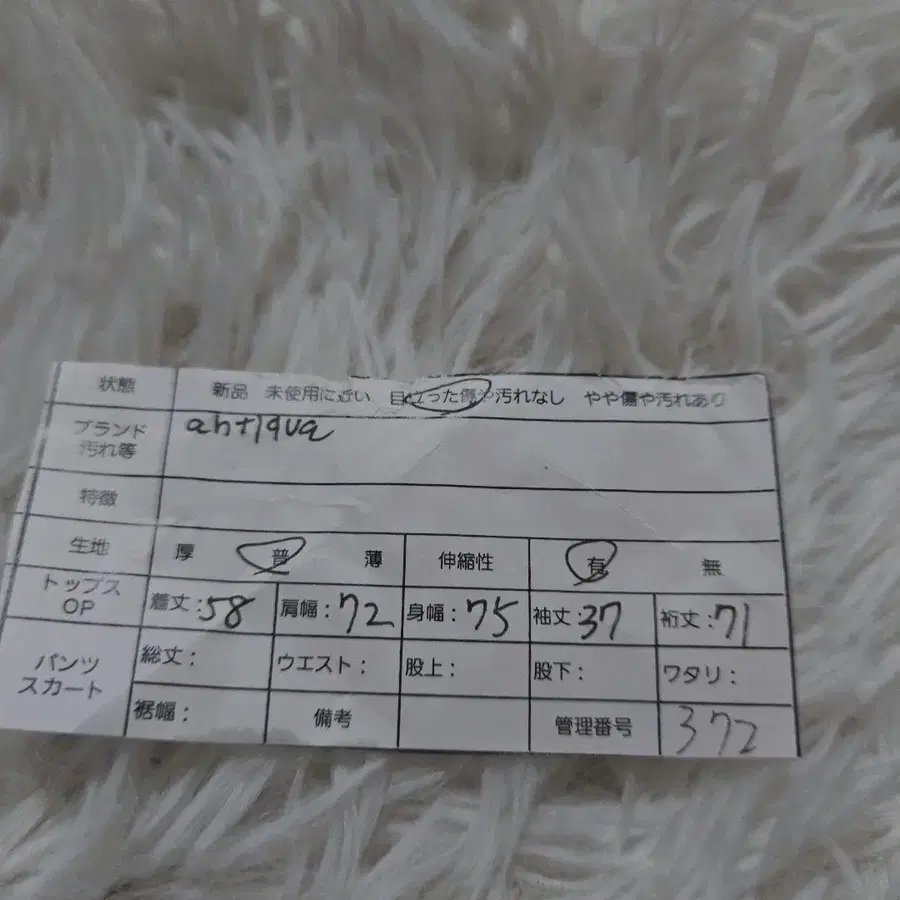 状態 新品 未使用に近い 目立った傷や汚れなし やや傷や汚れあり
ブランド antiqua
汚れ等
特徴
生地 厚 普 薄 伸縮性 有 無
トップス 着丈:58 肩幅:72 身幅:75 袖丈37 裄丈:71
OP
パンツ 総丈: ウエスト: 股上: 股下: ワタリ:
スカート
裾幅: 備考 管理番号 372